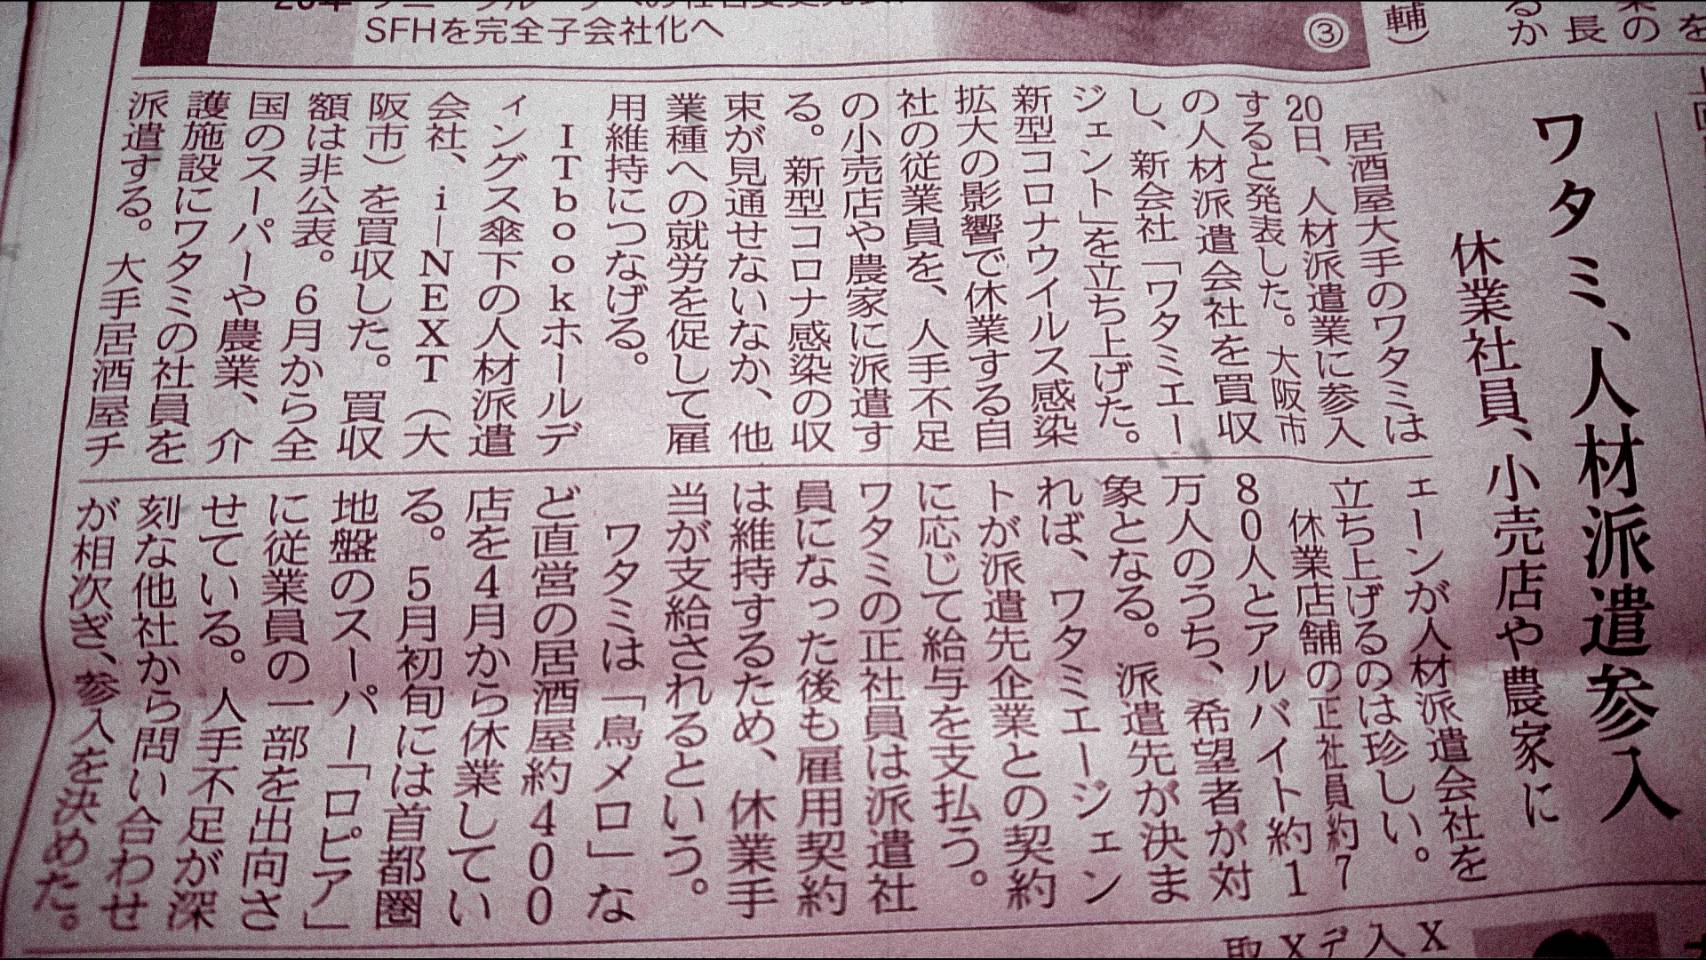 SFHを完全子会社化へ
③
輔）
ワタミ、人材派遣参入
休業社員、小売店や農家に
居酒屋大手のワタミは
20日、人材派遣業に参入
すると発表した。大阪市
の人材派遣会社を買収
し、新会社「ワタミエー
ジェント」を立ち上げた。
新型コロナウイルス感染
拡大の影響で休業する自
社の従業員を、人手不足
の小売店や農家に派遣す
る。新型コロナ感染の収
束が見通せないなか、他
業種への就労を促して雇
用維持につなげる。
ITbookホールデ
ィングス傘下の人材派遣
会社、i―NEXT（大
阪市）を買収した。買収
額は非公表。6月から全
国のスーパーや農業、介
護施設にワタミの社員を
派遣する。大手居酒屋チ
ェーンが人材派遣会社を
立ち上げるのは珍しい。
休業店舗の正社員約7
80人とアルバイト約1
万人のうち、希望者が対
象となる。派遣先が決ま
れば、ワタミエージェン
トが派遣先企業との契約
に応じて給与を支払う。
ワタミの正社員は派遣社
員になった後も雇用契約
は維持するため、休業手
当が支給されるという。
ワタミは「鳥メロ」な
ど直営の居酒屋約400
店を4月から休業してい
る。5月初旬には首都圏
地盤のスーパー「ロピア」
に従業員の一部を出向さ
せている。人手不足が深
刻な他社から問い合わせ
が相次ぎ、参入を決めた。